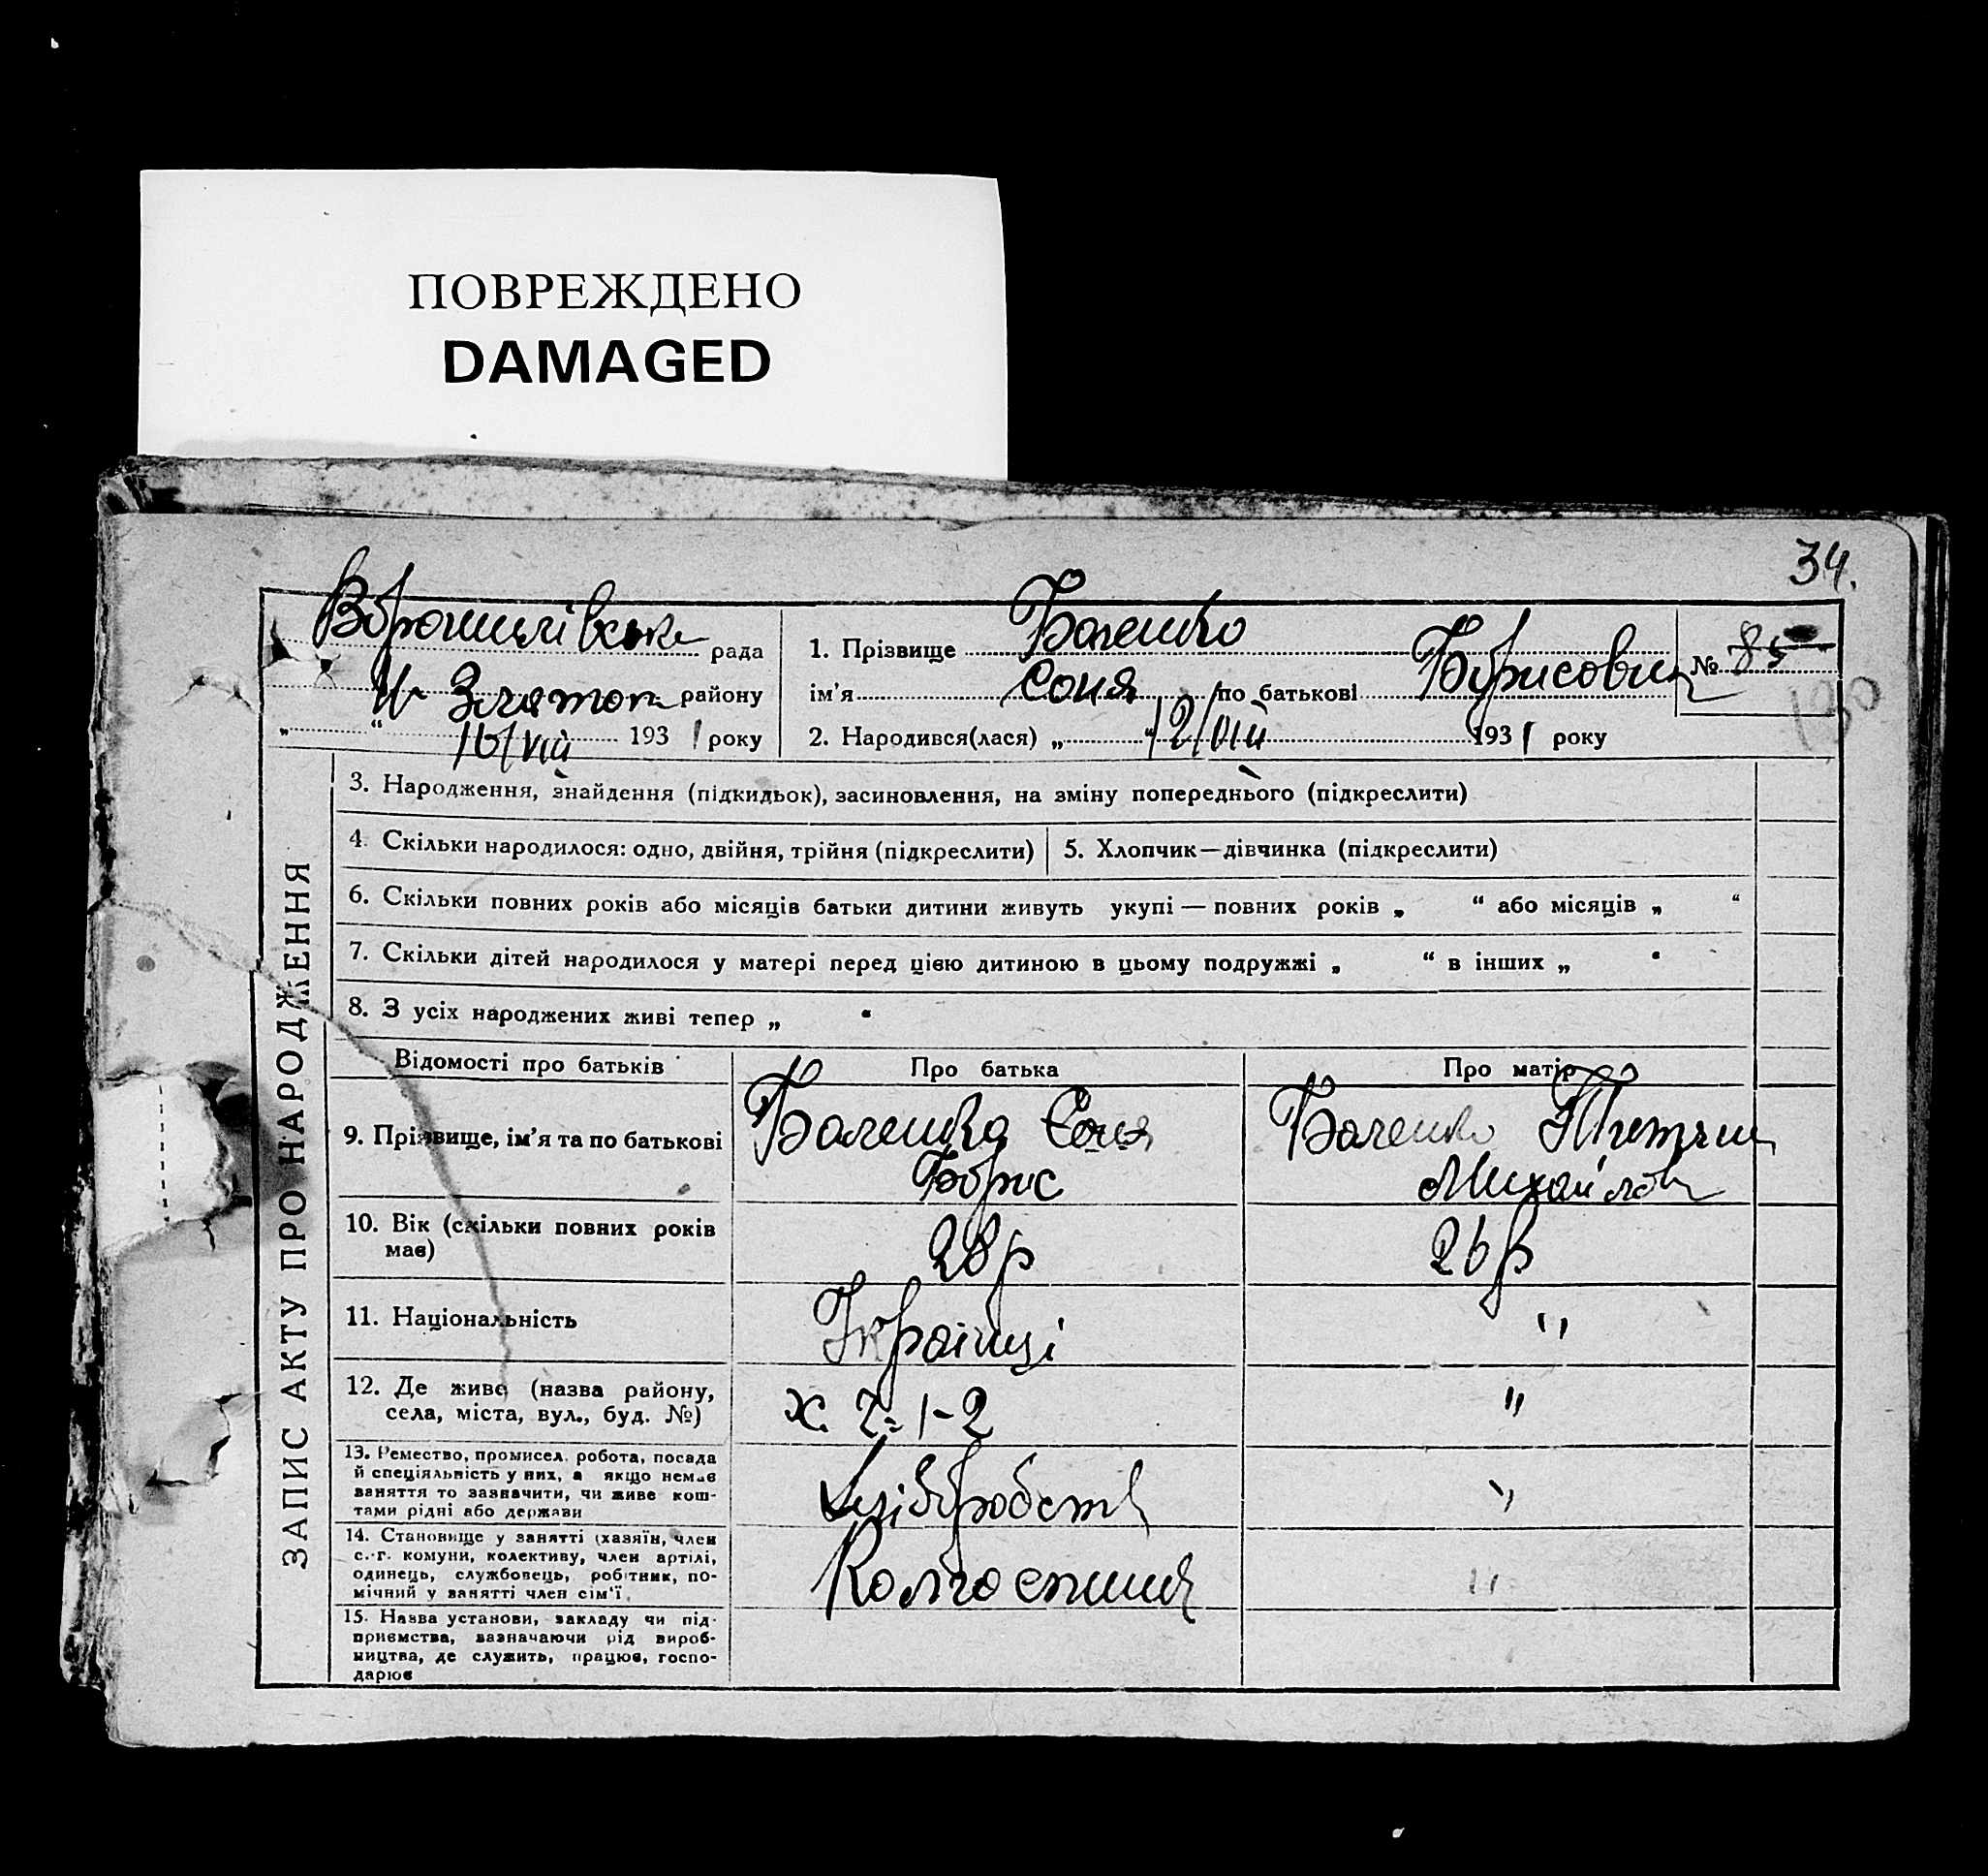 ПОВРЕЖДЕНО
DAMAGED
34.
рада
району
16/VIII 1931 року
1. Прізвище
ім'я Соня по батькові
№ 85
190
2. Народився(лася) „ “ 12/VIII 1931 року
ЗАПИС АКТУ ПРО НАРОДЖЕННЯ
3. Народження, знайдення (підкидьок), засиновлення, на зміну попереднього (підкреслити)
4. Скільки народилося: одно, двійня, трійня (підкреслити)
5. Хлопчик—дівчинка (підкреслити)
6. Скільки повних років або місяців батьки дитини живуть укупі — повних років „ “ або місяців „ “
7. Скільки дітей народилося у матері перед цією дитиною в цьому подружжі „ “ в інших „ “
8. З усіх народжених живі тепер „ “
Відомості про батьків
Про батька
Про матір
9. Прізвище, ім'я та по батькові
Соня
Борис
10. Вік (скільки повних років
має)
28 р
26 р
11. Національність
Українці
"
12. Де живе (назва району,
села, міста, вул., буд. №)
"
13. Ремество, промисел, робота, посада
й спеціяльність у них, а якщо немає
заняття то зазначити, чи живе кош-
тами рідні або держави
"
14. Становище у занятті (хазяїн, член
с.-г. комуни, колективу, член артілі,
одинець, службовець, робітник, по-
мічний у занятті член сім'ї
"
15. Назва установи, закладу чи під-
приємства, зазначаючи рід вироб-
ництва, де служить, працює, госпо-
дарює